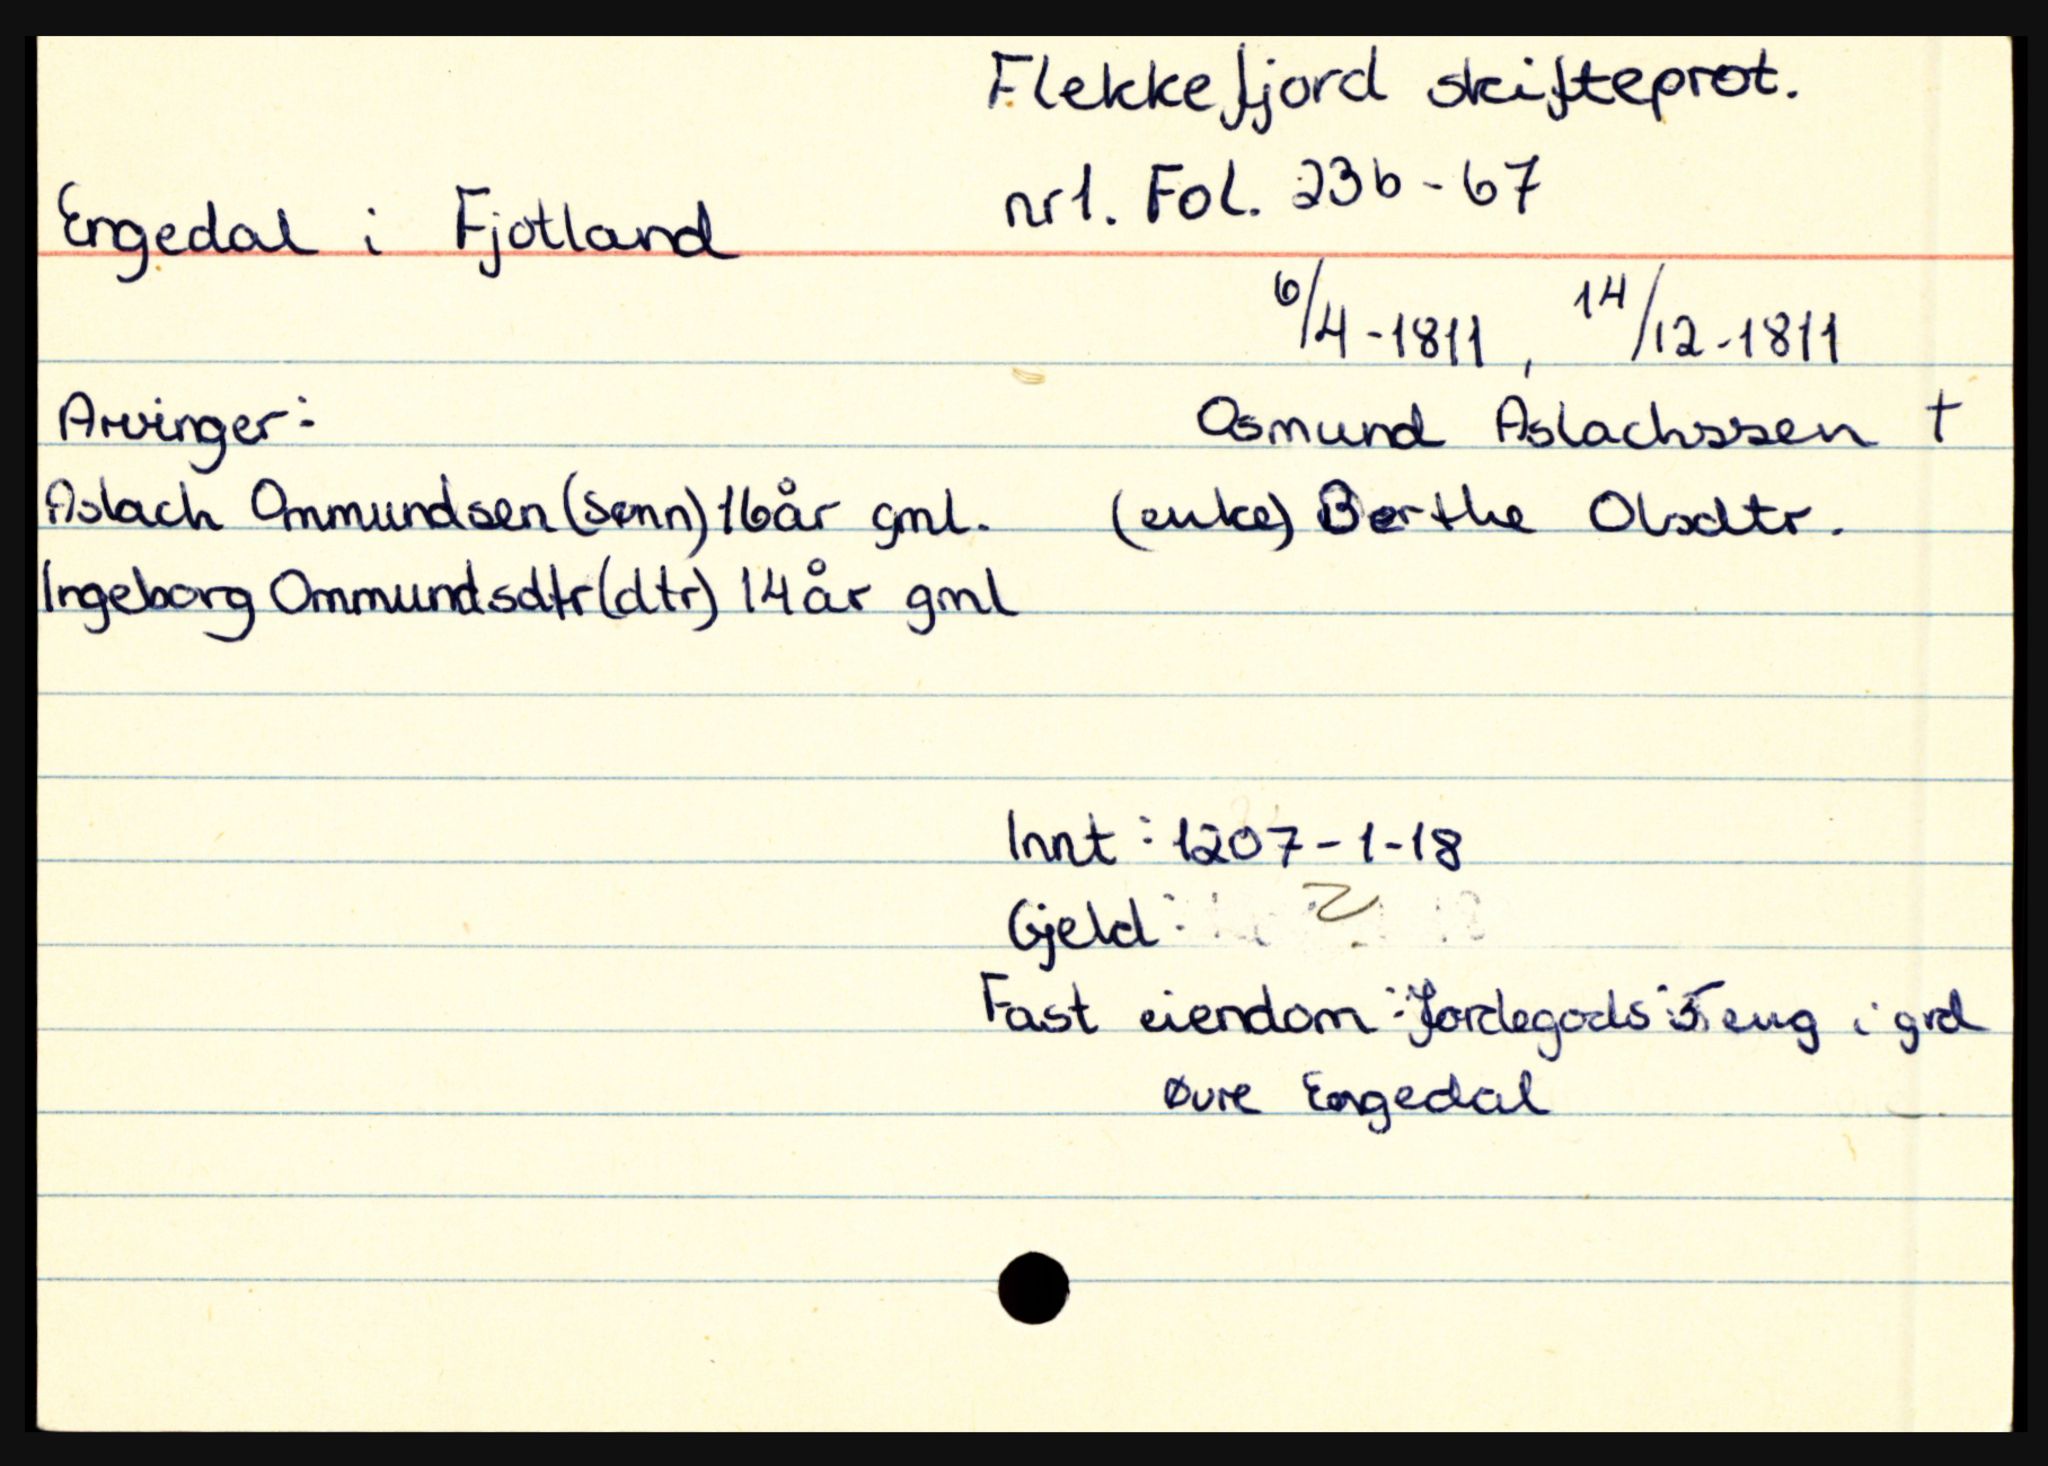 Flekkefjord skifteprot.
Engedal i Fjotland
nr1. Fol. 23b-67
6/4-1811, 14/12-1811
Arvinger:
Osmund Aslachssen †
Aslach Ommundsen (sønn) 16 år gml.
(enke) Berthe Olsdtr.
Ingeborg Ommundsdtr (dtr) 14 år gml
Innt: 1207-1-18
Gjeld:
Fast eiendom: Jordegods i grd
Øvre Engedal